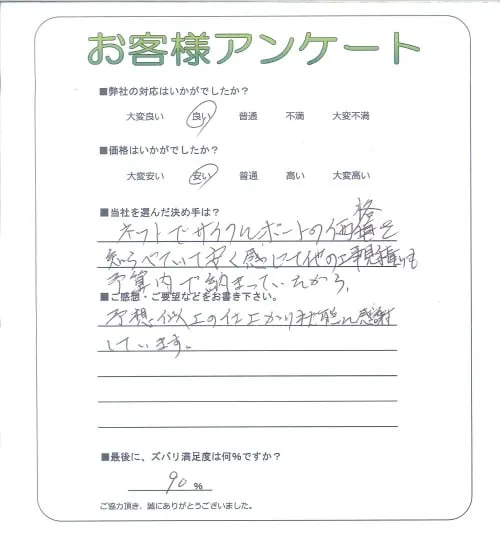 お客様アンケート
■弊社の対応はいかがでしたか？
大変良い 良い 普通 不満 大変不満
■価格はいかがでしたか？
大変安い 安い 普通 高い 大変高い
■当社を選んだ決め手は？
ネットでサイクルポートの価格を
知らべていて安く感じて他の工事見積りも
予算内で納まっていたから、
■ご感想・ご要望などをお書き下さい。
予想以上の仕上がり 感謝
しています。
■最後に、ズバリ満足度は何%ですか？
90 %
ご協力頂き、誠にありがとうございました。